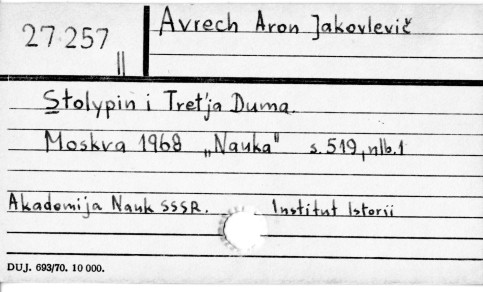 27257
II
Avrech Aron Jakovlevič
Stolypin i Tret'ja Duma.
Moskva 1968 „Nauka" s. 519, nlb. 1
Akademija Nauk SSSR. Institut Istorii
DUJ. 693/70. 10 000.